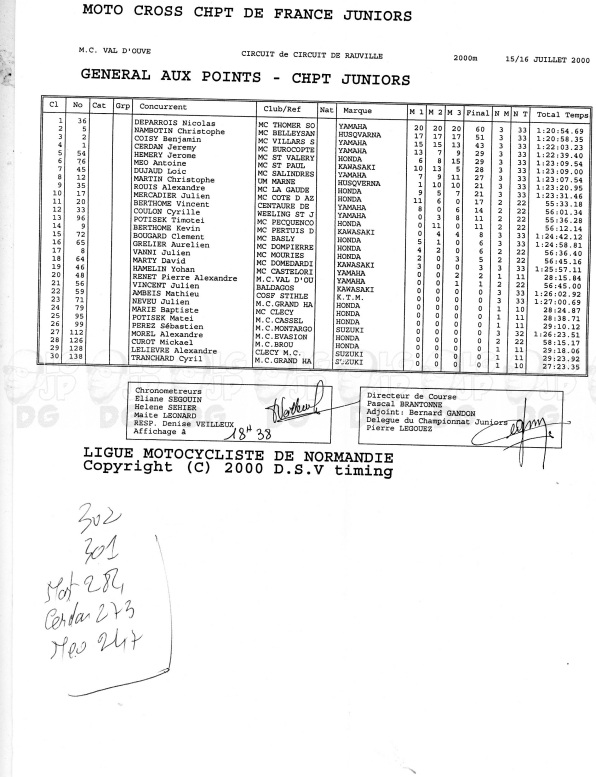 MOTO CROSS CHPT DE FRANCE JUNIORS
M.C. VAL D'OUVE CIRCUIT de CIRCUIT DE RAUVILLE 2000m 15/16 JUILLET 2000
GENERAL AUX POINTS - CHPT JUNIORS
Cl No Cat Grp Concurrent Club/Ref Nat Marque M 1 M 2 M 3 Final N M N T Total Temps
1 36 DEPARROIS Nicolas MC THOMER SO YAMAHA 20 20 20 60 3 33 1:20:54.69
2 5 NAMBOTIN Christophe MC BELLEYSAN HUSQVARNA 17 17 17 51 3 33 1:20:58.35
3 2 COISY Benjamin MC VILLARS S YAMAHA 15 15 13 43 3 33 1:22:03.23
4 1 CERDAN Jeremy MC EUROCOPTE YAMAHA 13 7 9 29 3 33 1:22:39.40
5 54 HEMERY Jerome MC ST VALERY HONDA 6 8 15 29 3 33 1:23:09.54
6 76 MEO Antoine MC ST PAUL KAWASAKI 10 13 5 28 3 33 1:23:09.00
7 45 DUJAUD Loic MC SALINDRES YAMAHA 7 9 11 27 3 33 1:23:07.54
8 12 MARTIN Christophe UM MARNE HUSQVERNA 1 10 10 21 3 33 1:23:20.95
9 35 ROUIS Alexandre MC LA GAUDE HONDA 9 5 7 21 3 33 1:23:31.46
10 17 MERCADIER Julien MC COTE D AZ HONDA 11 6 0 17 2 22 55:33.18
11 20 BERTHOME Vincent CENTAURE DE YAMAHA 8 0 6 14 2 22 56:01.34
12 33 COULON Cyrille WEELING ST J YAMAHA 0 3 8 11 2 22 55:36.28
13 96 POTISEK Timotei MC PECQUENCO HONDA 0 11 0 11 2 22 56:12.14
14 9 BERTHOME Kevin MC PERTUIS D KAWASAKI 0 4 4 8 3 33 1:24:42.12
15 72 BOUGARD Clement MC BASLY HONDA 5 1 0 6 3 33 1:24:58.81
16 65 GRELIER Aurelien MC DOMPIERRE HONDA 4 2 0 6 2 22 56:36.40
17 8 VANNI Julien MC MOURIES HONDA 2 0 3 5 2 22 56:45.16
18 64 MARTY David MC DOMEDARDI KAWASAKI 3 0 0 3 3 33 1:25:57.11
19 46 HAMELIN Yohan MC CASTELORI YAMAHA 0 0 2 2 1 11 28:15.84
20 48 RENET Pierre Alexandre M.C.VAL D'OU YAMAHA 0 0 1 1 2 22 56:45.00
21 56 VINCENT Julien BALDAGOS KAWASAKI 0 0 0 0 3 33 1:26:02.92
22 59 AMBEIS Mathieu COSF STIHLE K.T.M. 0 0 0 0 3 33 1:27:00.69
23 71 NEVEU Julien M.C.GRAND HA HONDA 0 0 0 0 1 10 28:24.87
24 79 MARIE Baptiste MC CLECY HONDA 0 0 0 0 1 11 28:38.71
25 95 POTISEK Matei M.C.CASSEL HONDA 0 0 0 0 1 11 29:10.12
26 99 PEREZ Sébastien M.C.MONTARGO SUZUKI 0 0 0 0 3 32 1:26:23.51
27 112 MOREL Alexandre M.C.EVASION HONDA 0 0 0 0 2 22 58:15.17
28 126 CUROT Mickael M.C.BROU HONDA 0 0 0 0 1 11 29:18.06
29 128 LELIEVRE Alexandre CLECY M.C. SUZUKI 0 0 0 0 1 11 29:23.92
30 138 TRANCHARD Cyril M.C.GRAND HA SUZUKI 0 0 0 0 1 10 27:23.35
Chronometreurs
Eliane SEGOUIN
Helene SEHIER
Maite LEONARD
RESP. Denise VEILLEUX
Affichage à 18H38
Directeur de Course
Pascal BRANTONNE
Adjoint: Bernard GANDON
Delegue du Championnat Juniors
Pierre LEGOUEZ
LIGUE MOTOCYCLISTE DE NORMANDIE
Copyright (C) 2000 D.S.V timing
302
301
Cerdan 273
Meo 247